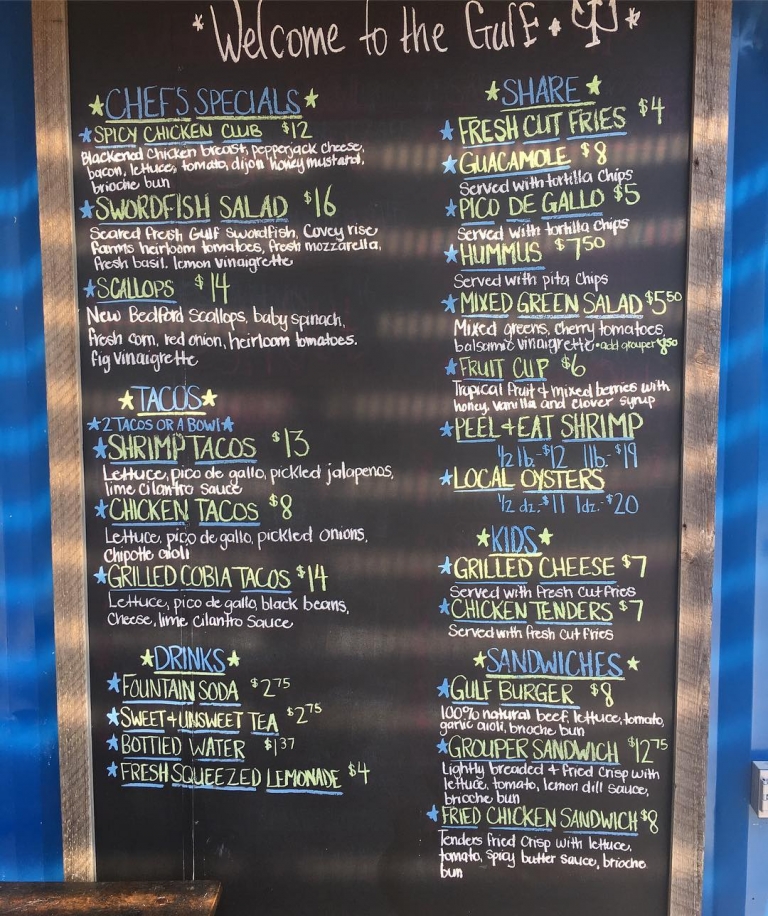 *Welcome to the Gulf.
CHEF'S SPECIALS
SPICY CHICKEN CLUB $12
Blackened chicken breast, pepperjack cheese,
bacon, lettuce, tomato, dijon honey mustard,
brioche bun
SWORDFISH SALAD $16
Seared fresh Gulf swordfish, Covey rise
farms heirloom tomatoes, fresh mozzarella,
fresh basil. lemon vinaigrette
SCALLOPS $14
New Bedford Scallops, baby spinach,
fresh corn, red onion, heirloom tomatoes.
fig vinaigrette
TACOS
*2 TACOS OR A BOWL*
SHRIMP TACOS $13
Lettuce, pico de gallo, pickled jalapenos,
lime cilantro sauce
CHICKEN TACOS $8
Lettuce, pico de gallo, pickled onions,
Chipotle aioli
GRILLED COBIA TACOS $14
Lettuce, pico de gallo, black beans,
Cheese, lime cilantro sauce
DRINKS
FOUNTAIN SODA $2.75
SWEET + UNSWEET TEA $2.75
BOTTLED WATER $1.37
FRESH SQUEEZED LEMONADE $4
SHARE
FRESH CUT FRIES $4
GUACAMOLE $8
Served with tortilla chips
PICO DE GALLO $5
Served with tortilla chips
HUMMUS $7.50
Served with pita chips
MIXED GREEN SALAD $5.50
Mixed greens, cherry tomatoes,
balsamic vinaigrette • add grouper
FRUIT CUP $6
Tropical fruit + mixed berries with
honey, vanilla and clover syrup
PEEL + EAT SHRIMP
1/2 lb. - $12 1lb. - $19
LOCAL OYSTERS
1/2 dz. - $11 1dz. - $20
KIDS
GRILLED CHEESE $7
Served with fresh cut fries
CHICKEN TENDERS $7
Served with fresh cut fries
SANDWICHES
GULF BURGER $8
100% natural beef, lettuce, tomato,
garlic aioli, brioche bun
GROUPER SANDWICH $12.75
Lightly breaded + fried crisp with
lettuce, tomato, lemon dill sauce,
brioche bun
FRIED CHICKEN SANDWICH $8
Tenders fried crisp with lettuce,
tomato, spicy butter sauce, brioche
bun